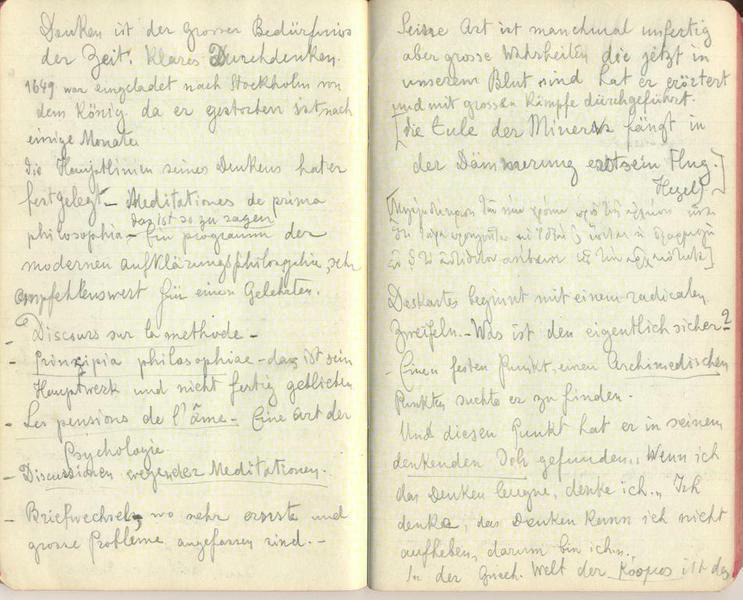 Denken ist der grosser Bedürfniss
der Zeit. Klares Durchdenken.
1649 war eingeladet nach Stockholm von
dem König. da er gestorben ist, nach
einige Monate
die Hauptlinien seines Denkens hat er
festgelegt – Meditationes de prima
das ist so zu sagen
philosophia – Ein programm der
modernen aufklärungsphilosophie, sehr
empfehlenswert für einen Gelehrten.
– Discours sur la methode –
– Prinzipia philosophiae – das ist sein
Hauptwerk und nicht fertig geblieben
– Les pensions de l'âme – Eine art der
Psychologie
– Discussionen wegen der Meditationen.
– Briefwechsel, wo sehr ernste und
grosse Probleme angefassen sind. –
Seine Art ist manchmal unfertig
aber grosse Wahrheiten die jetzt in
unserem Blut sind hat er erörtert
und mit grossen Kämpfe durchgeführt.
[die Eule der Minerva fängt in
der Dämmerung erst sein Flug.]
Hegel
Deskartes beginnt mit einem radicalen
Zweifeln. – Was ist den eigentlich sicher?
– Einen festen Punkt, einen Archimedischen
Punkten suchte er zu finden.
Und diesen Punkt hat er in seinem
denkenden Ich gefunden. „Wenn ich
das Denken leugne, denke ich." Ich
denke, das Denken kann ich nicht
aufheben, darum bin ich."
In der Griech. Welt der Κοσμος ist das